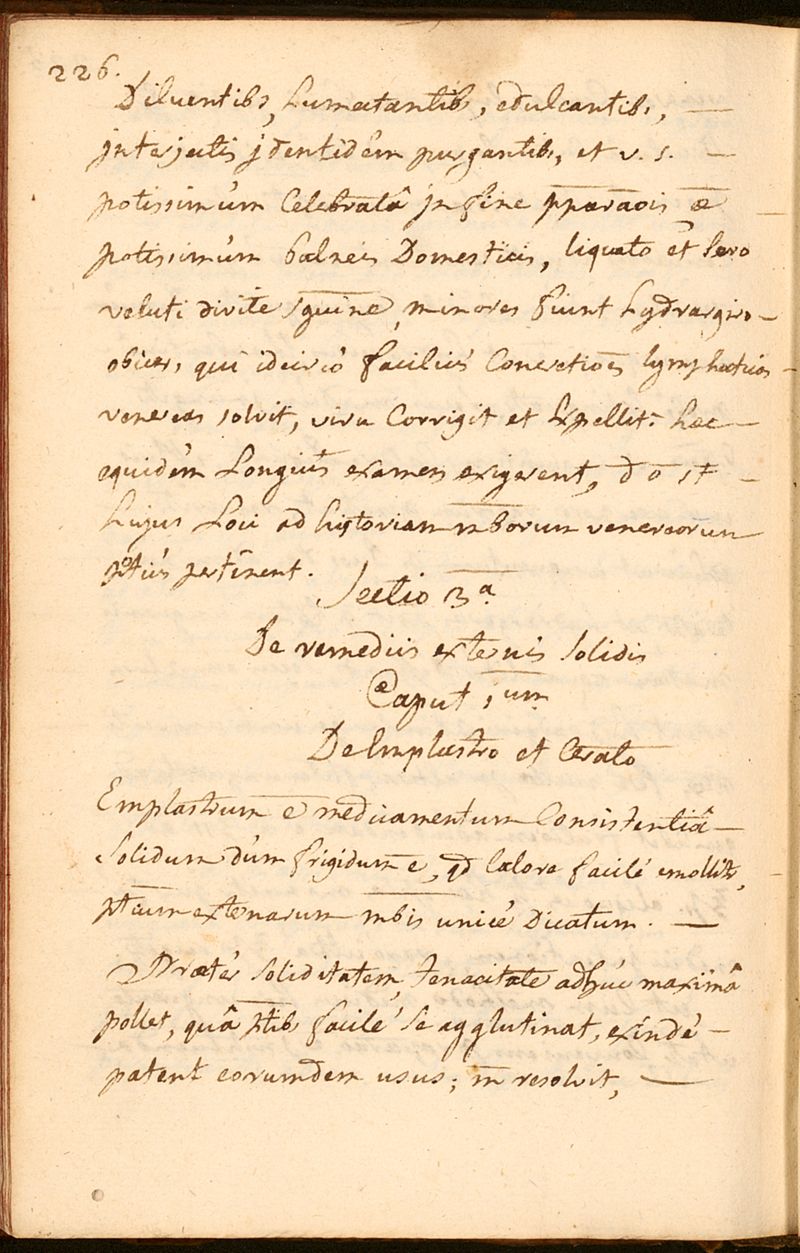 226.
Diluentibs, humectantibs, edulcantibs,
jnterjectis jdentidém purgantibs, et v. s.
potissimúm Celebratâ jn fine pparaōis æ
potissimúm balneis Domesticis, liquato et sero
veluti divite sguine, minores fiunt hydrargiro
obices, qui idcircó faciliús Concretiōes lymphaticas
venereas solvit, virus Corrigit et Expellit. haec
equidém Longiús examen exigerent,
hujus Loci ad historiam mborum venereorum
ptiús pertinent.
Sectio 3a.
De remediis externis solidis
Caput 1um
De Emplastro et Cerato
Emplastrum ē medicamentum Consistentiâ
Solidum dúm frigidum ē, qd Calore facilé emollitr,
ptium externarum mbis unicé Dicatum.
Præter soliditatem, tenacitate adhúc maximâ
pollet, quâ ptibs facilé se agglutinat, exindé
patent eorumdem usus; m resolvit,